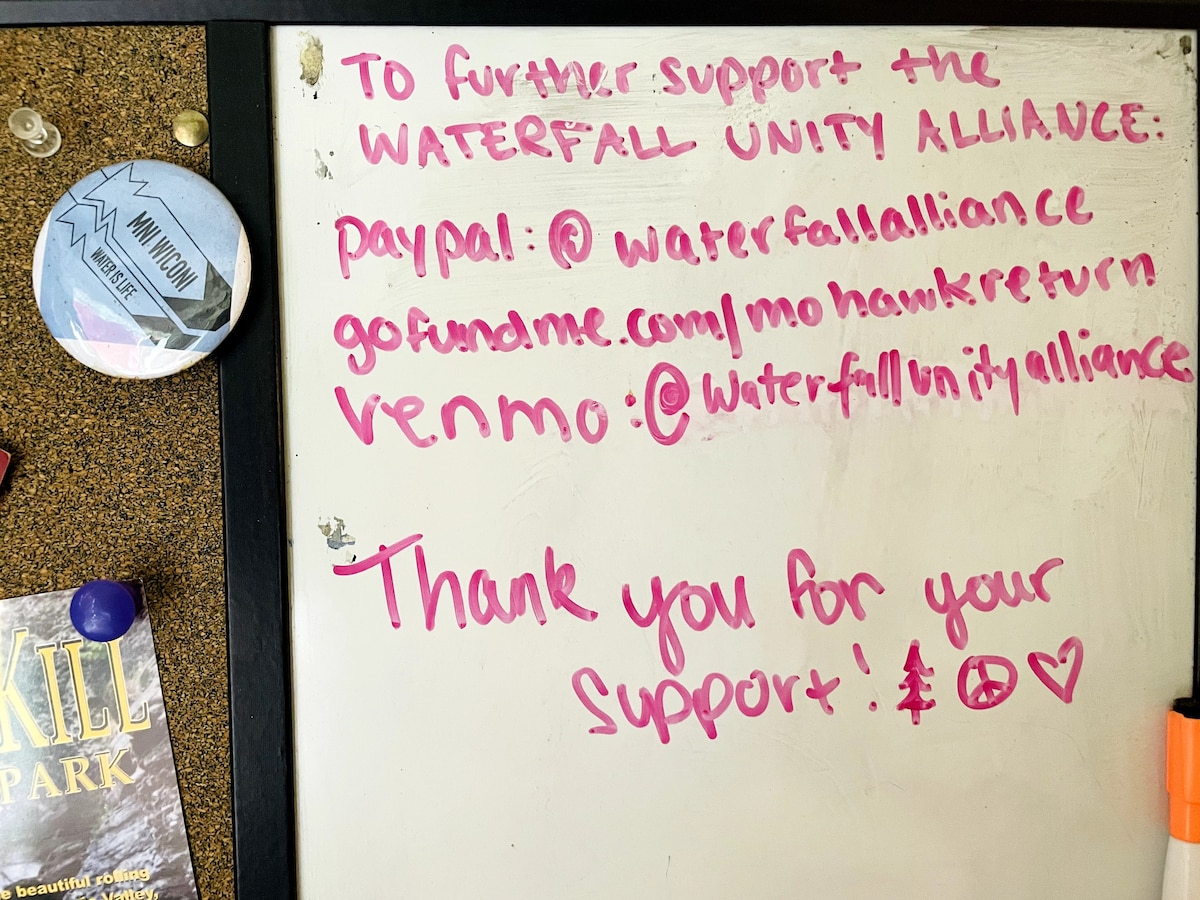 To further support the
WATERFALL UNITY ALLIANCE:
paypal: @waterfallalliance
gofundme.com/mohawkreturn
venmo: @waterfallunityalliance
Thank you for your
support!
MNI WICONI
WATER IS LIFE
KILL
PARK
beautiful rolling
Valley,